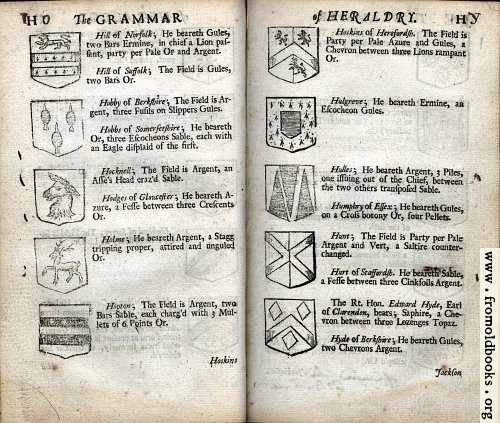 HO The GRAMMAR
Hill of Norfolk; He beareth Gules,
two Bars Ermine, in chief a Lion pas-
sant, party per Pale Or and Argent.
Hill of Suffolk; The Field is Gules,
two Bars Or.
Hobby of Berkshire; The Field is Ar-
gent, three Fusils on Slippers Gules.
Hobbs of Somersetshire; He beareth
Or, three Escocheons Sable, each with
an Eagle displaid of the first.
Hocknell; The Field is Argent, an
Asse's Head eraz'd Sable.
Hodges of Gloucester; He beareth A-
zure, a Fesse between three Crescents
Or.
Holme; He beareth Argent, a Stagg
tripping proper, attired and unguled
Or.
Hopton; The Field is Argent, two
Bars Sable, each charg'd with 3 Mul-
lets of 6 Points Or.
Hoskins
of HERALDRY. HY
Hoskins of Herefordsh. The Field is
Party per Pale Azure and Gules, a
Chevron between three Lions rampant
Or.
Hulgrove; He beareth Ermine, an
Escocheon Gules.
Hulles; He beareth Argent, 3 Piles,
one issuing out of the Chief, between
the two others transposed Sable.
Humphry of Essex; He beareth Gules,
on a Cross botony Or, four Pellets.
Hunt; The Field is Party per Pale
Argent and Vert, a Saltire counter-
changed.
Hurt of Staffordsh. He beareth Sable,
a Fesse between three Cinkfoils Argent.
The Rt. Hon. Edward Hyde, Earl
of Clarendon, bears; Saphire, a Che-
vron between three Lozenges Topaz.
Hyde of Berkshire; He beareth Gules,
two Chevrons Argent.
Jackson
www.fromoldbooks.org